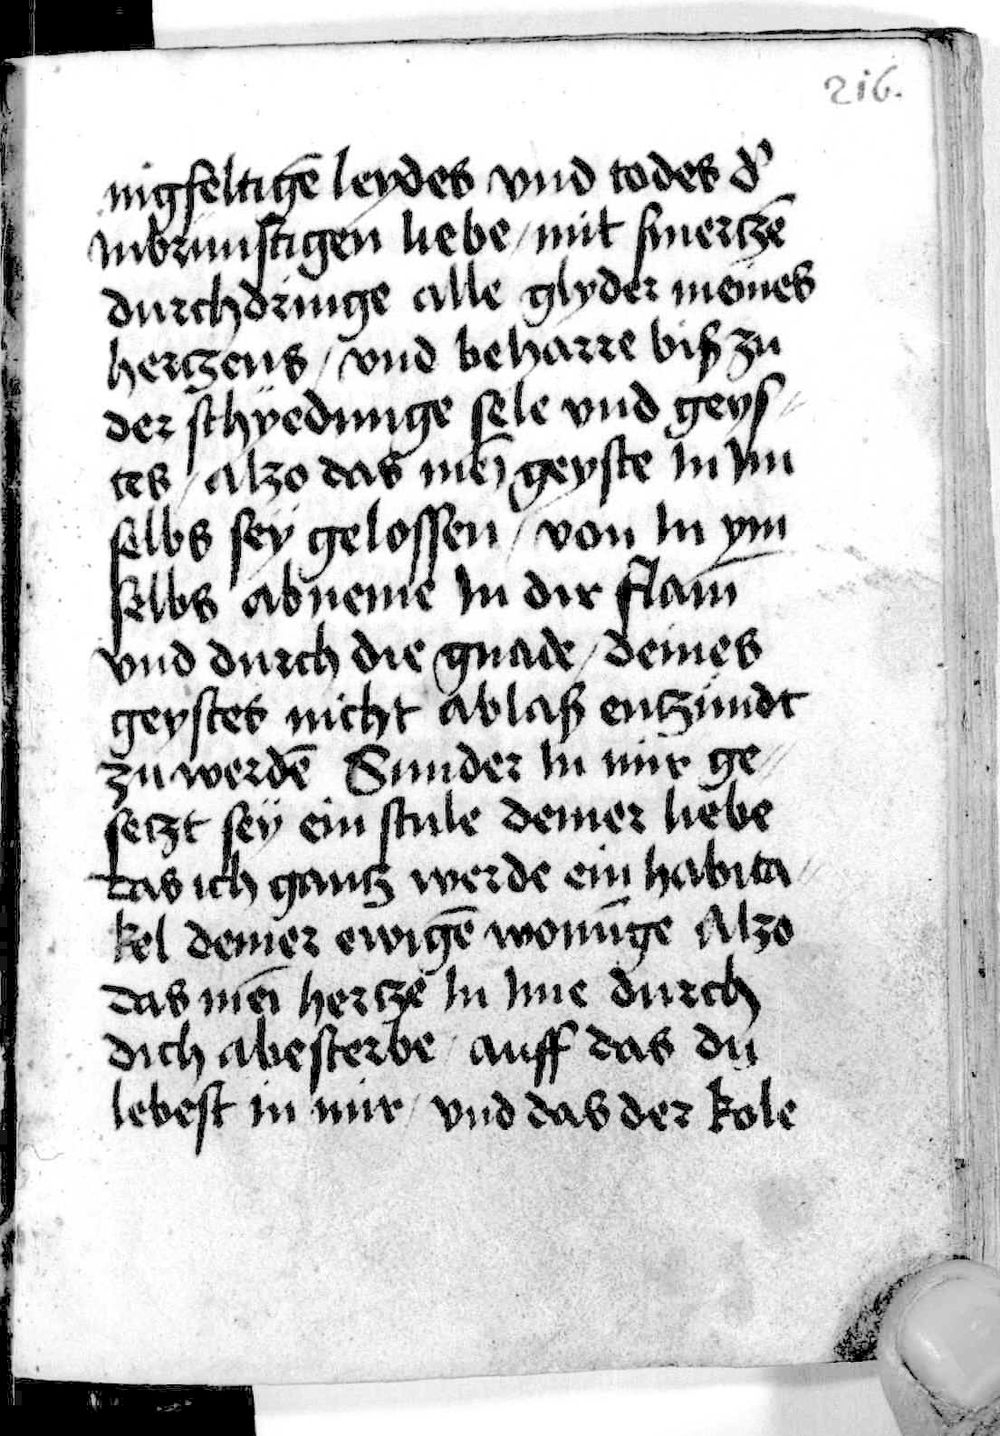 216.
nigfeltigē leydes vnd todes d'
Inbrunstigen liebe / mit smertzē
durchdringe alle glyder meines
hertzens / vnd beharre biß zu
der schÿedunge sele vnd geys//
tes / alzo das mei̅ geyste In Im
selbs seÿ gelossen / von In ym
selbs abneme In dir flam̅
vnd durch die gnade / deines
geystes nicht ablaß entzundt
zu werdē Sunder In mir ge//
setzt seÿ ein stule deiner liebe
das ich gantz werde ein habita//
kel deiner ewigē wonūge Alzo
das mei̅ hertze In Ime durch
dich abesterbe / auff das du
lebest in mir / vnd das der kole